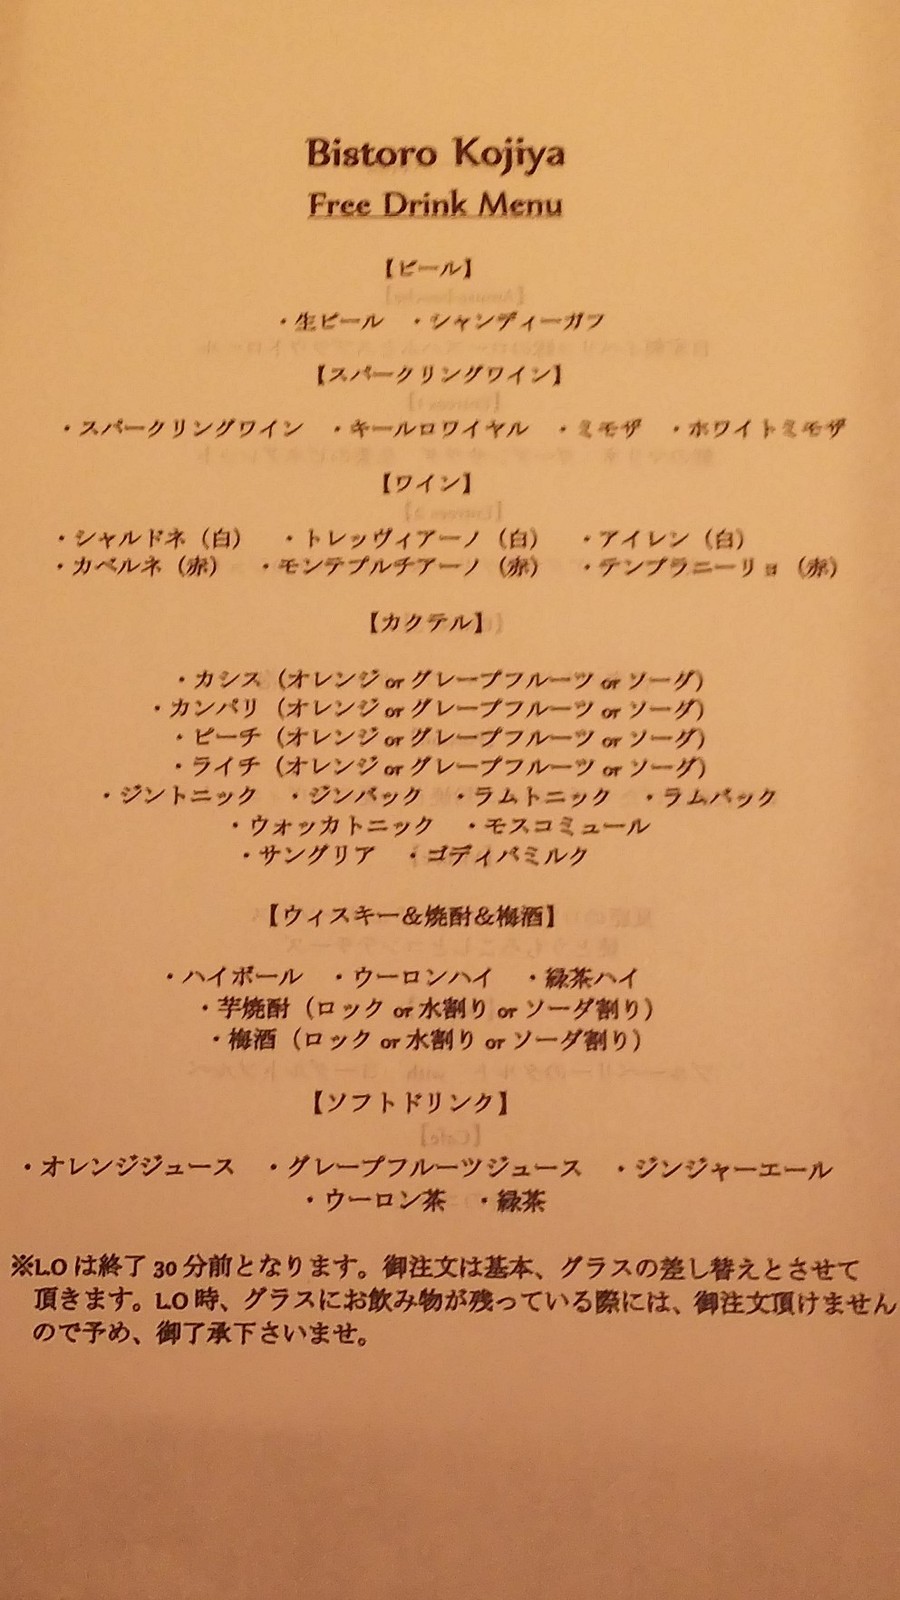 Bistoro Kojiya
Free Drink Menu
【ビール】
・生ビール　・シャンディーガフ
【スパークリングワイン】
・スパークリングワイン　・キールロワイヤル　・ミモザ　・ホワイトミモザ
【ワイン】
・シャルドネ（白）　・トレッヴィアーノ（白）　・アイレン（白）
・カベルネ（赤）　・モンテプルチアーノ（赤）　・テンプラニーリョ（赤）
【カクテル】
・カシス（オレンジ or グレープフルーツ or ソーダ）
・カンパリ（オレンジ or グレープフルーツ or ソーダ）
・ピーチ（オレンジ or グレープフルーツ or ソーダ）
・ライチ（オレンジ or グレープフルーツ or ソーダ）
・ジントニック　・ジンバック　・ラムトニック　・ラムバック
・ウォッカトニック　・モスコミュール
・サングリア　・ゴディバミルク
【ウィスキー＆焼酎＆梅酒】
・ハイボール　・ウーロンハイ　・緑茶ハイ
・芋焼酎（ロック or 水割り or ソーダ割り）
・梅酒（ロック or 水割り or ソーダ割り）
【ソフトドリンク】
・オレンジジュース　・グレープフルーツジュース　・ジンジャーエール
・ウーロン茶　・緑茶
※L.O は終了 30 分前となります。御注文は基本、グラスの差し替えとさせて
頂きます。L.O 時、グラスにお飲み物が残っている際には、御注文頂けません
ので予め、御了承下さいませ。